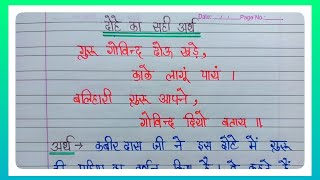 Date : / /
Page No.:
दोहे का सही अर्थ
गुरू गोविन्द दोऊ खड़े,
काके लागूं पायं ।
बलिहारी गुरू आपने,
गोविन्द दियो बताय ॥
अर्थ → कबीर दास जी ने इस दोहे में गुरू
की महिमा का वर्णन किया है। वे कहते हैं